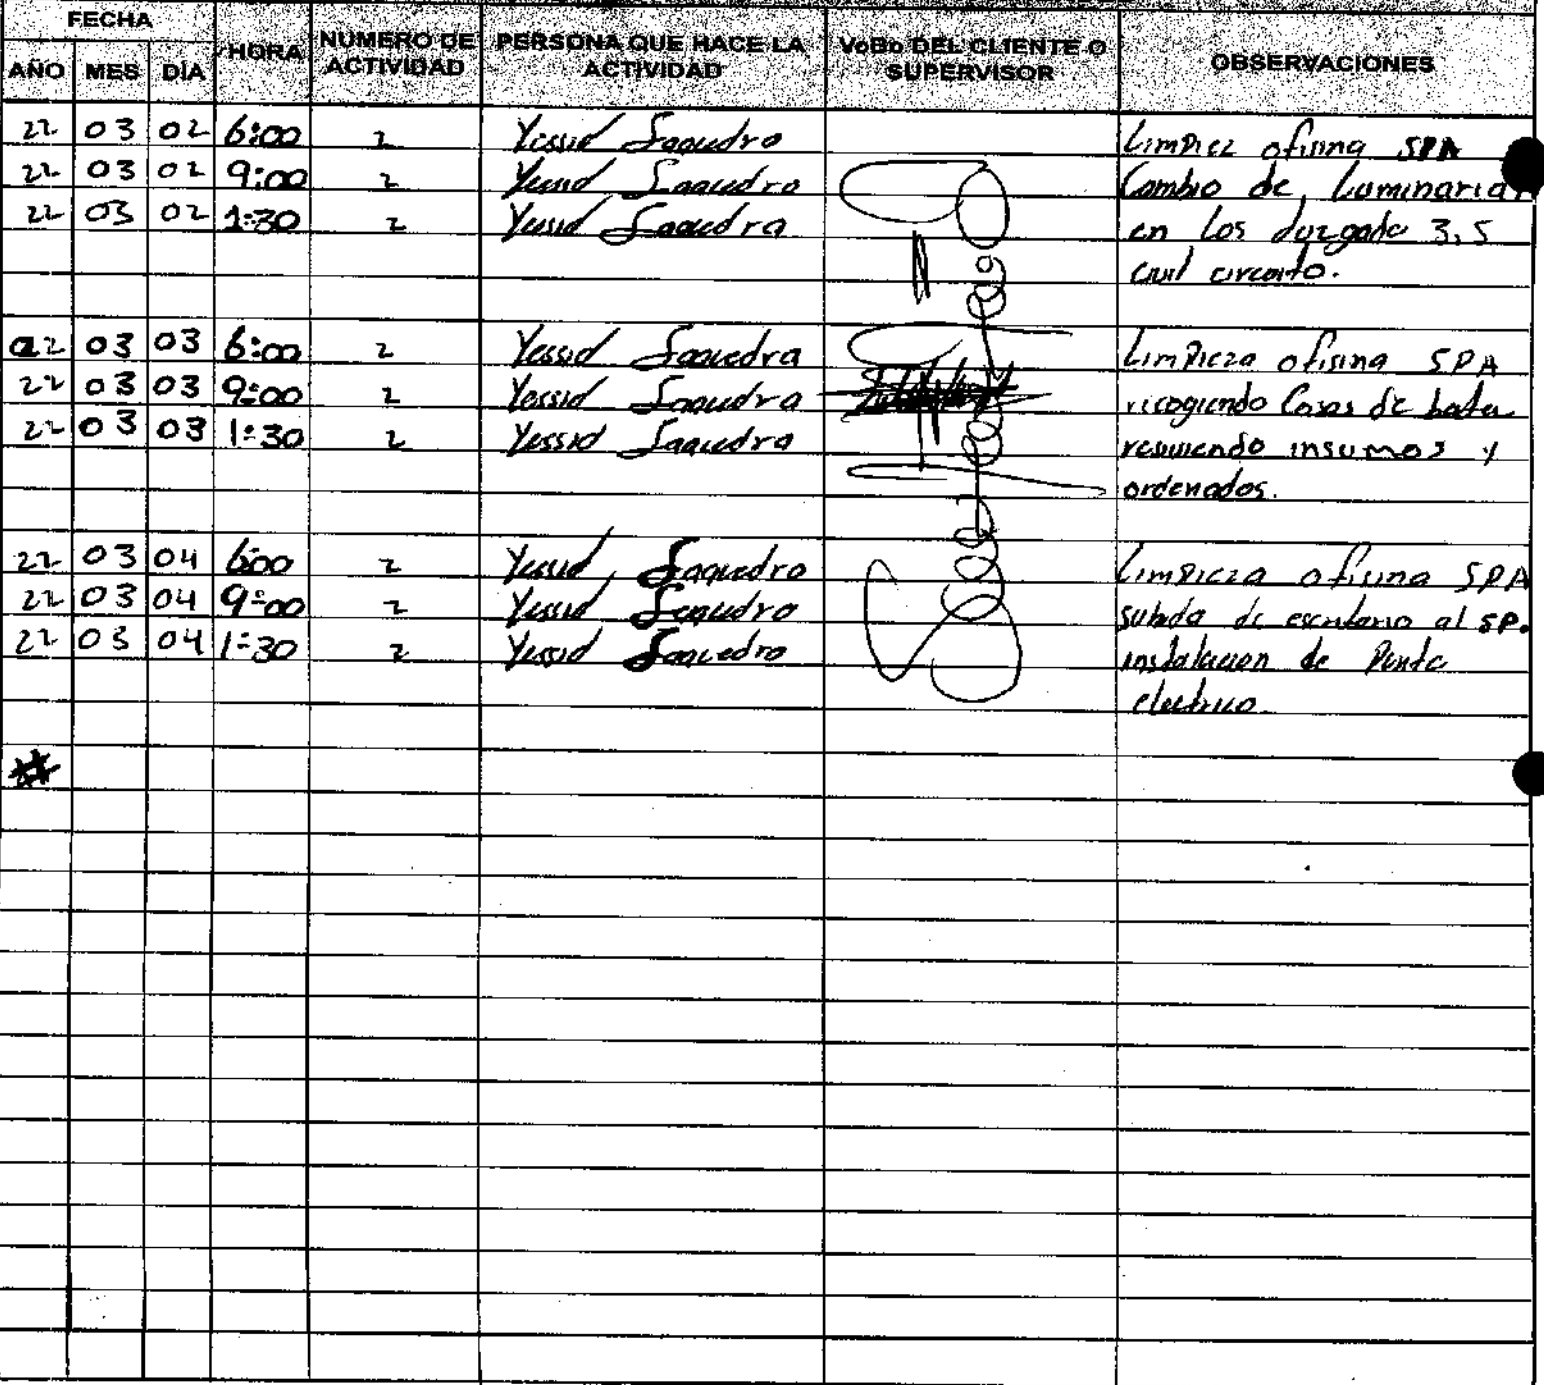 FECHA
AÑO MES DÍA HORA NUMERO DE ACTIVIDAD PERSONA QUE HACE LA ACTIVIDAD VoBo DEL CLIENTE O SUPERVISOR OBSERVACIONES
22 03 02 6:00 2 Yessid Saavedra Limpiez ofisina SPA
22 03 02 9:00 2 Yessid Saavedra Cambio de Luminarias
22 03 02 1:30 2 Yessid Saavedra en Los Juzgado 3, 5
civil circuito.
22 03 03 6:00 2 Yessid Saavedra Limpieza ofisina SPA
22 03 03 9:00 2 Yessid Saavedra ricogiendo Cosas de
22 03 03 1:30 2 Yessid Saavedra insumos y
ordenados.
22 03 04 6:00 2 Yessid Saavedra Limpieza ofisina SPA
22 03 04 9:00 2 Yessid Saavedra subida de escritorio al SP.
22 03 04 1:30 2 Yessid Saavedra instalacion de Punto
electrico